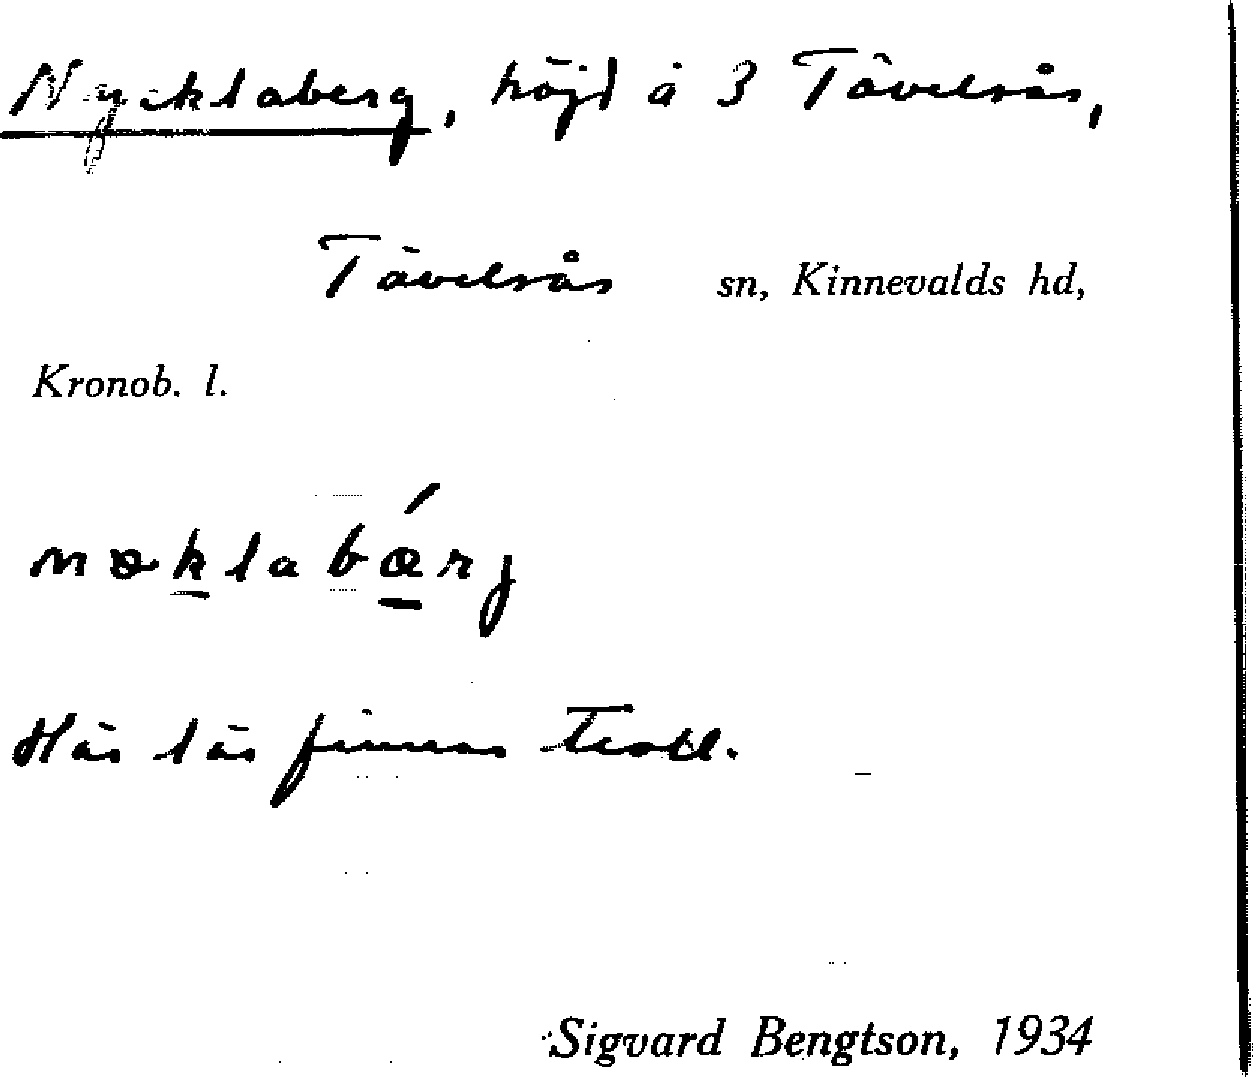 Nycklaberg, höjd å 3 Tävelsås,
Tävelsås sn, Kinnevalds hd,
Kronob. l.
Här lär finnas Troll.
Sigvard Bengtson, 1934